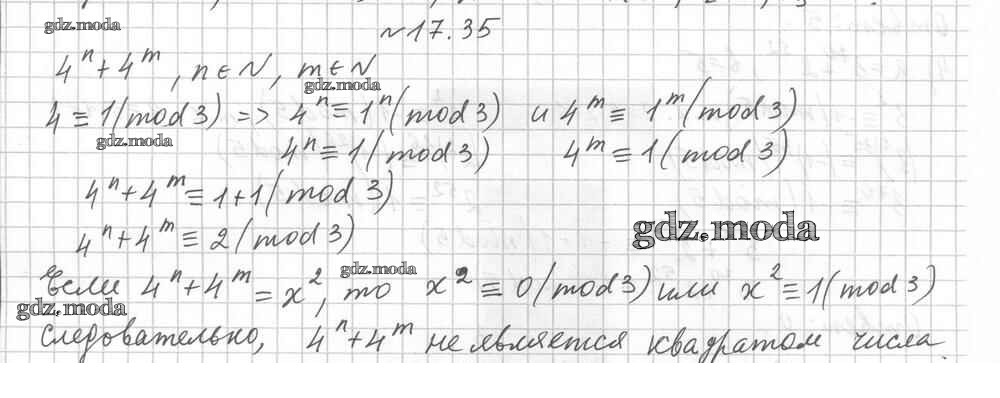 gdz.moda
№17.35
4ⁿ + 4ᵐ, n ∈ N, m ∈ N
gdz.moda
4 ≡ 1 (mod 3) => 4ⁿ ≡ 1ⁿ (mod 3) и 4ᵐ ≡ 1ᵐ (mod 3)
gdz.moda
4ⁿ ≡ 1 (mod 3) 4ᵐ ≡ 1 (mod 3)
4ⁿ + 4ᵐ ≡ 1+1 (mod 3)
gdz.moda
4ⁿ + 4ᵐ ≡ 2 (mod 3)
gdz.moda
Если 4ⁿ + 4ᵐ = x², то x² ≡ 0 (mod 3) или x² ≡ 1 (mod 3)
gdz.moda
следовательно, 4ⁿ + 4ᵐ не является квадратом числа.